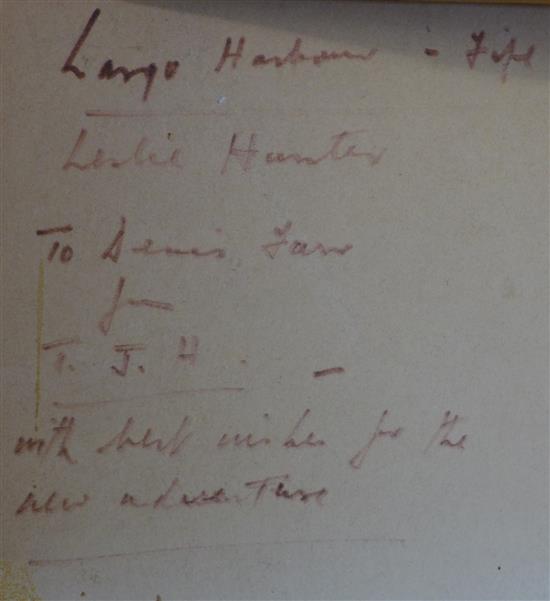 Largo Harbour - Fife
Leslie Hunter
To Denis Farr
from
T. J. H. -
with best wishes for the
new adventure